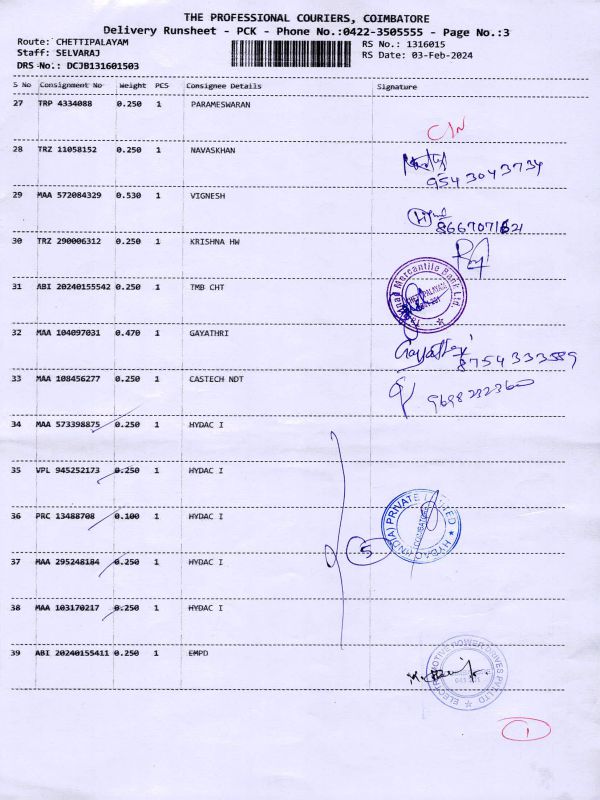 THE PROFESSIONAL COURIERS, COIMBATORE
Delivery Runsheet - PCK - Phone No.:0422-3505555 - Page No.:3
Route: CHETTIPALAYAM RS No.: 1316015
Staff: SELVARAJ RS Date: 03-Feb-2024
DRS No.: DCJB131601503
S No Consignment No Weight PCS Consignee Details Signature
27 TRP 4334088 0.250 1 PARAMESWARAN
C/N
28 TRZ 11058152 0.250 1 NAVASKHAN
9543043734
29 MAA 572084329 0.530 1 VIGNESH
30 TRZ 290006312 0.250 1 KRISHNA HW
31 ABI 20240155542 0.250 1 TMB CHT
Mercantile Bank Ltd.
CHETTIPALAYAM
32 MAA 104097031 0.470 1 GAYATHRI
Gayathri
8754333589
33 MAA 108456277 0.250 1 CASTECH NDT
9698232360
34 MAA 573398875 0.250 1 HYDAC I
35 VPL 945252173 0.250 1 HYDAC I
36 PRC 13488708 0.100 1 HYDAC I
HYDAC (INDIA) PRIVATE LIMITED
COIMBATORE
5
37 MAA 295248184 0.250 1 HYDAC I
38 MAA 103170217 0.250 1 HYDAC I
39 ABI 20240155411 0.250 1 EMPD
ELECTROMOTIVE POWER DRIVES PVT LTD
1